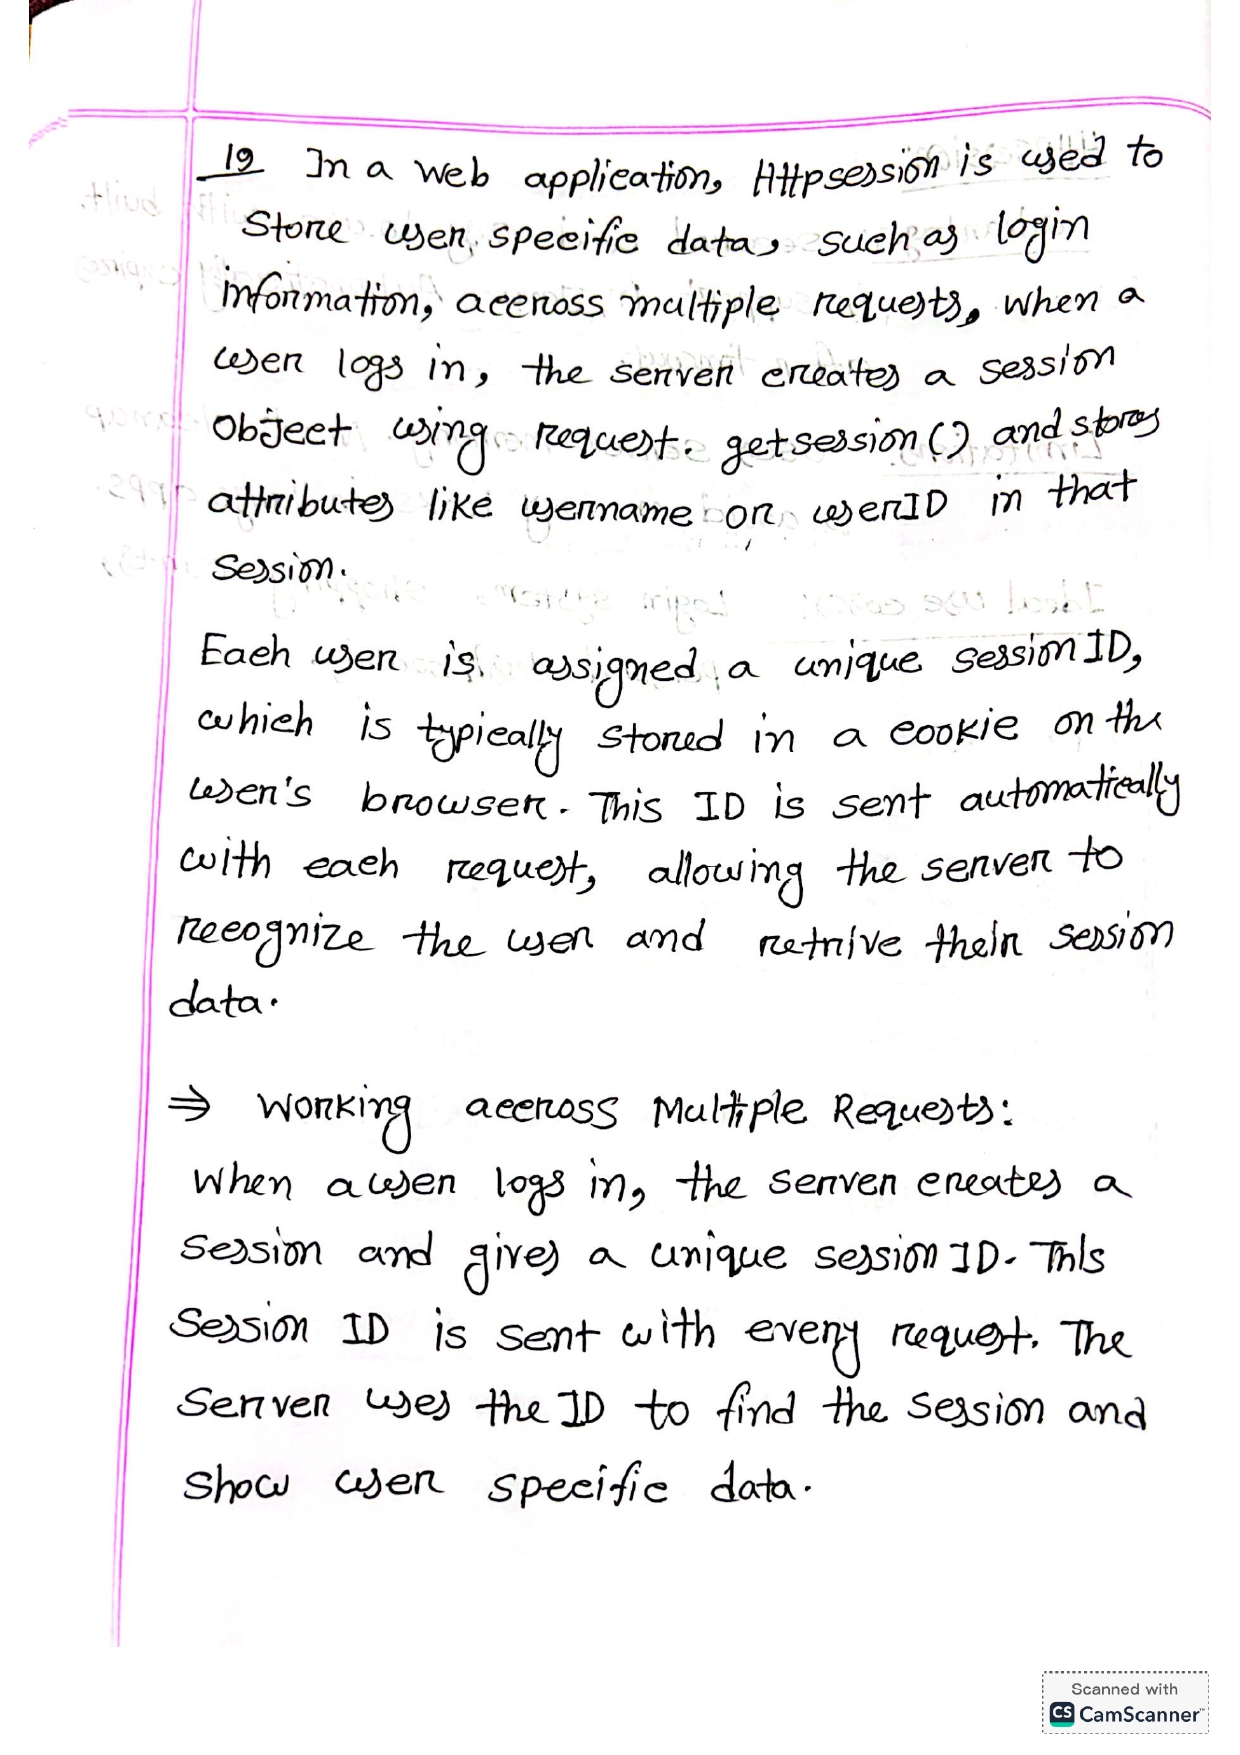 19 In a web application, Httpsession is used to
store user specific data, such as login
information, accross multiple requests, when a
user logs in, the server creates a session
object using request. getsession() and stores
attributes like username or userID in that
session.
Each user is assigned a unique session ID,
which is typically stored in a cookie on the
user's browser. This ID is sent automatically
with each request, allowing the server to
recognize the user and retrive their session
data.
⇒ Working accross Multiple Requests:
When a user logs in, the server creates a
session and gives a unique session ID. This
session ID is sent with every request. The
server uses the ID to find the session and
show user specific data.
Scanned with
CS CamScanner